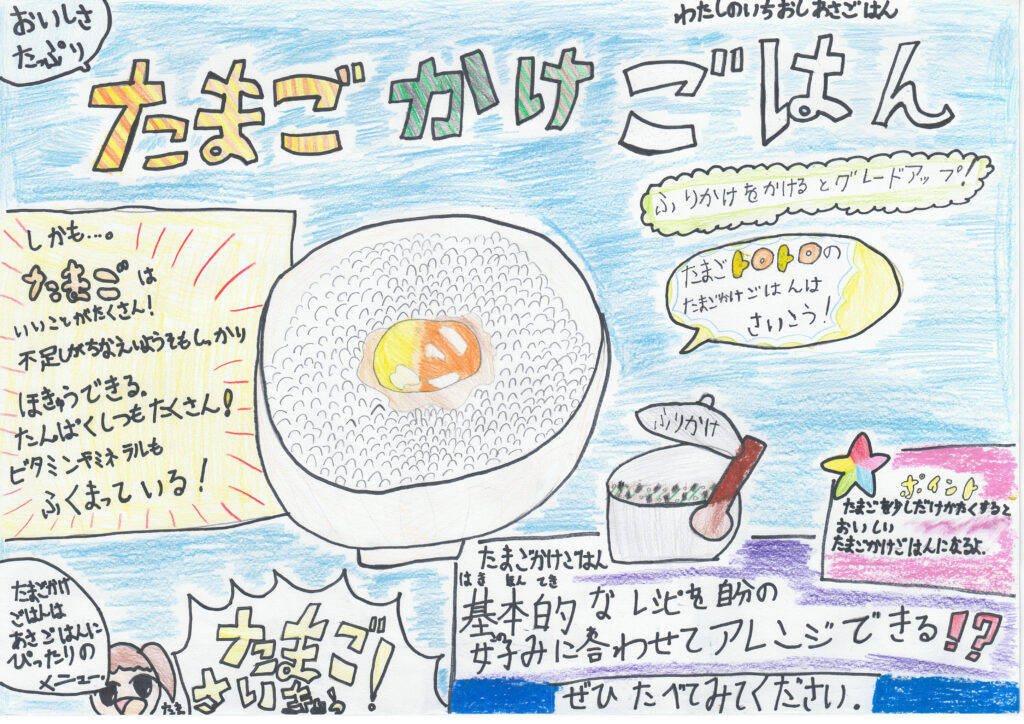 おいしさ
たっぷり
わたしのいちおしあさごはん
たまごかけごはん
ふりかけをかけるとグレードアップ!
たまごトロトロの
たまごかけごはんは
さいこう!
しかも…。
たまごは
いいことがたくさん!
不足しがちなえいようそもしっかり
ほきゅうできる。
たんぱくしつもたくさん!
ビタミンやミネラルも
ふくまっている!
ふりかけ
ポイント
たまごを少しだけかたくすると
おいしい
たまごかけごはんになるよ。
たまごかけ
ごはんは
あさごはんに
ぴったりの
メニュー
たまご!
さいきょう!
たまごかけごはん
はき ほん てき
基本的なレシピを自分の
好みに合わせてアレンジできる!?
ぜひたべてみてください.